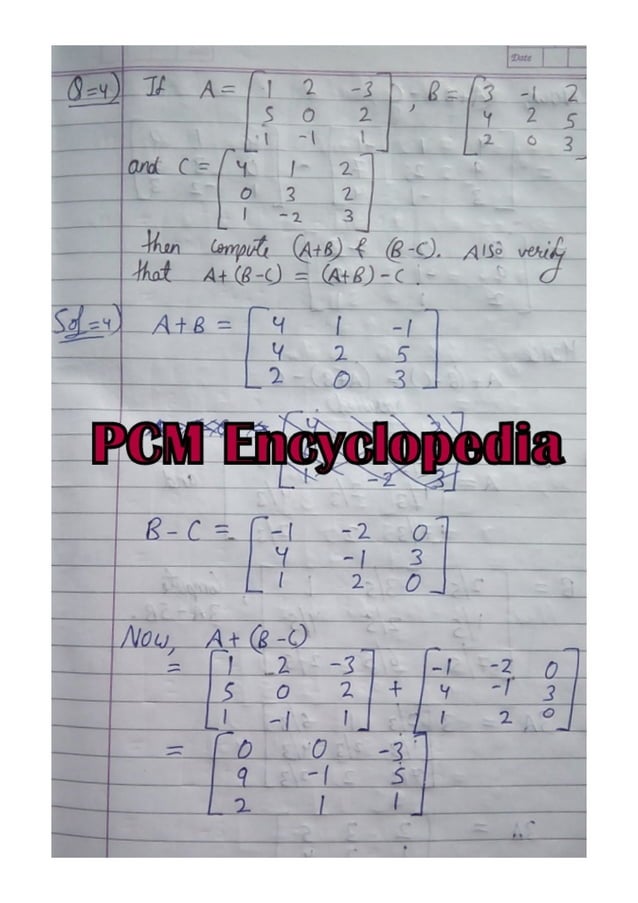 Date
Q=4) If A = [1 2 -3 , B = [3 -1 2
5 0 2 4 2 5
1 -1 1] 2 0 3
and C = [4 1 2
0 3 2
1 -2 3]
then compute (A+B) & (B-C). Also verify
that A+(B-C) = (A+B)-C.
Sol=4) A+B = [4 1 -1
4 2 5
2 0 3]
PCM Encyclopedia
1 -2 3]
B-C = [-1 -2 0
4 -1 3
1 2 0]
Now, A+(B-C)
= [1 2 -3 + [-1 -2 0
5 0 2 4 -1 3
1 -1 1] 1 2 0]
= [0 0 -3
9 -1 5
2 1 1]